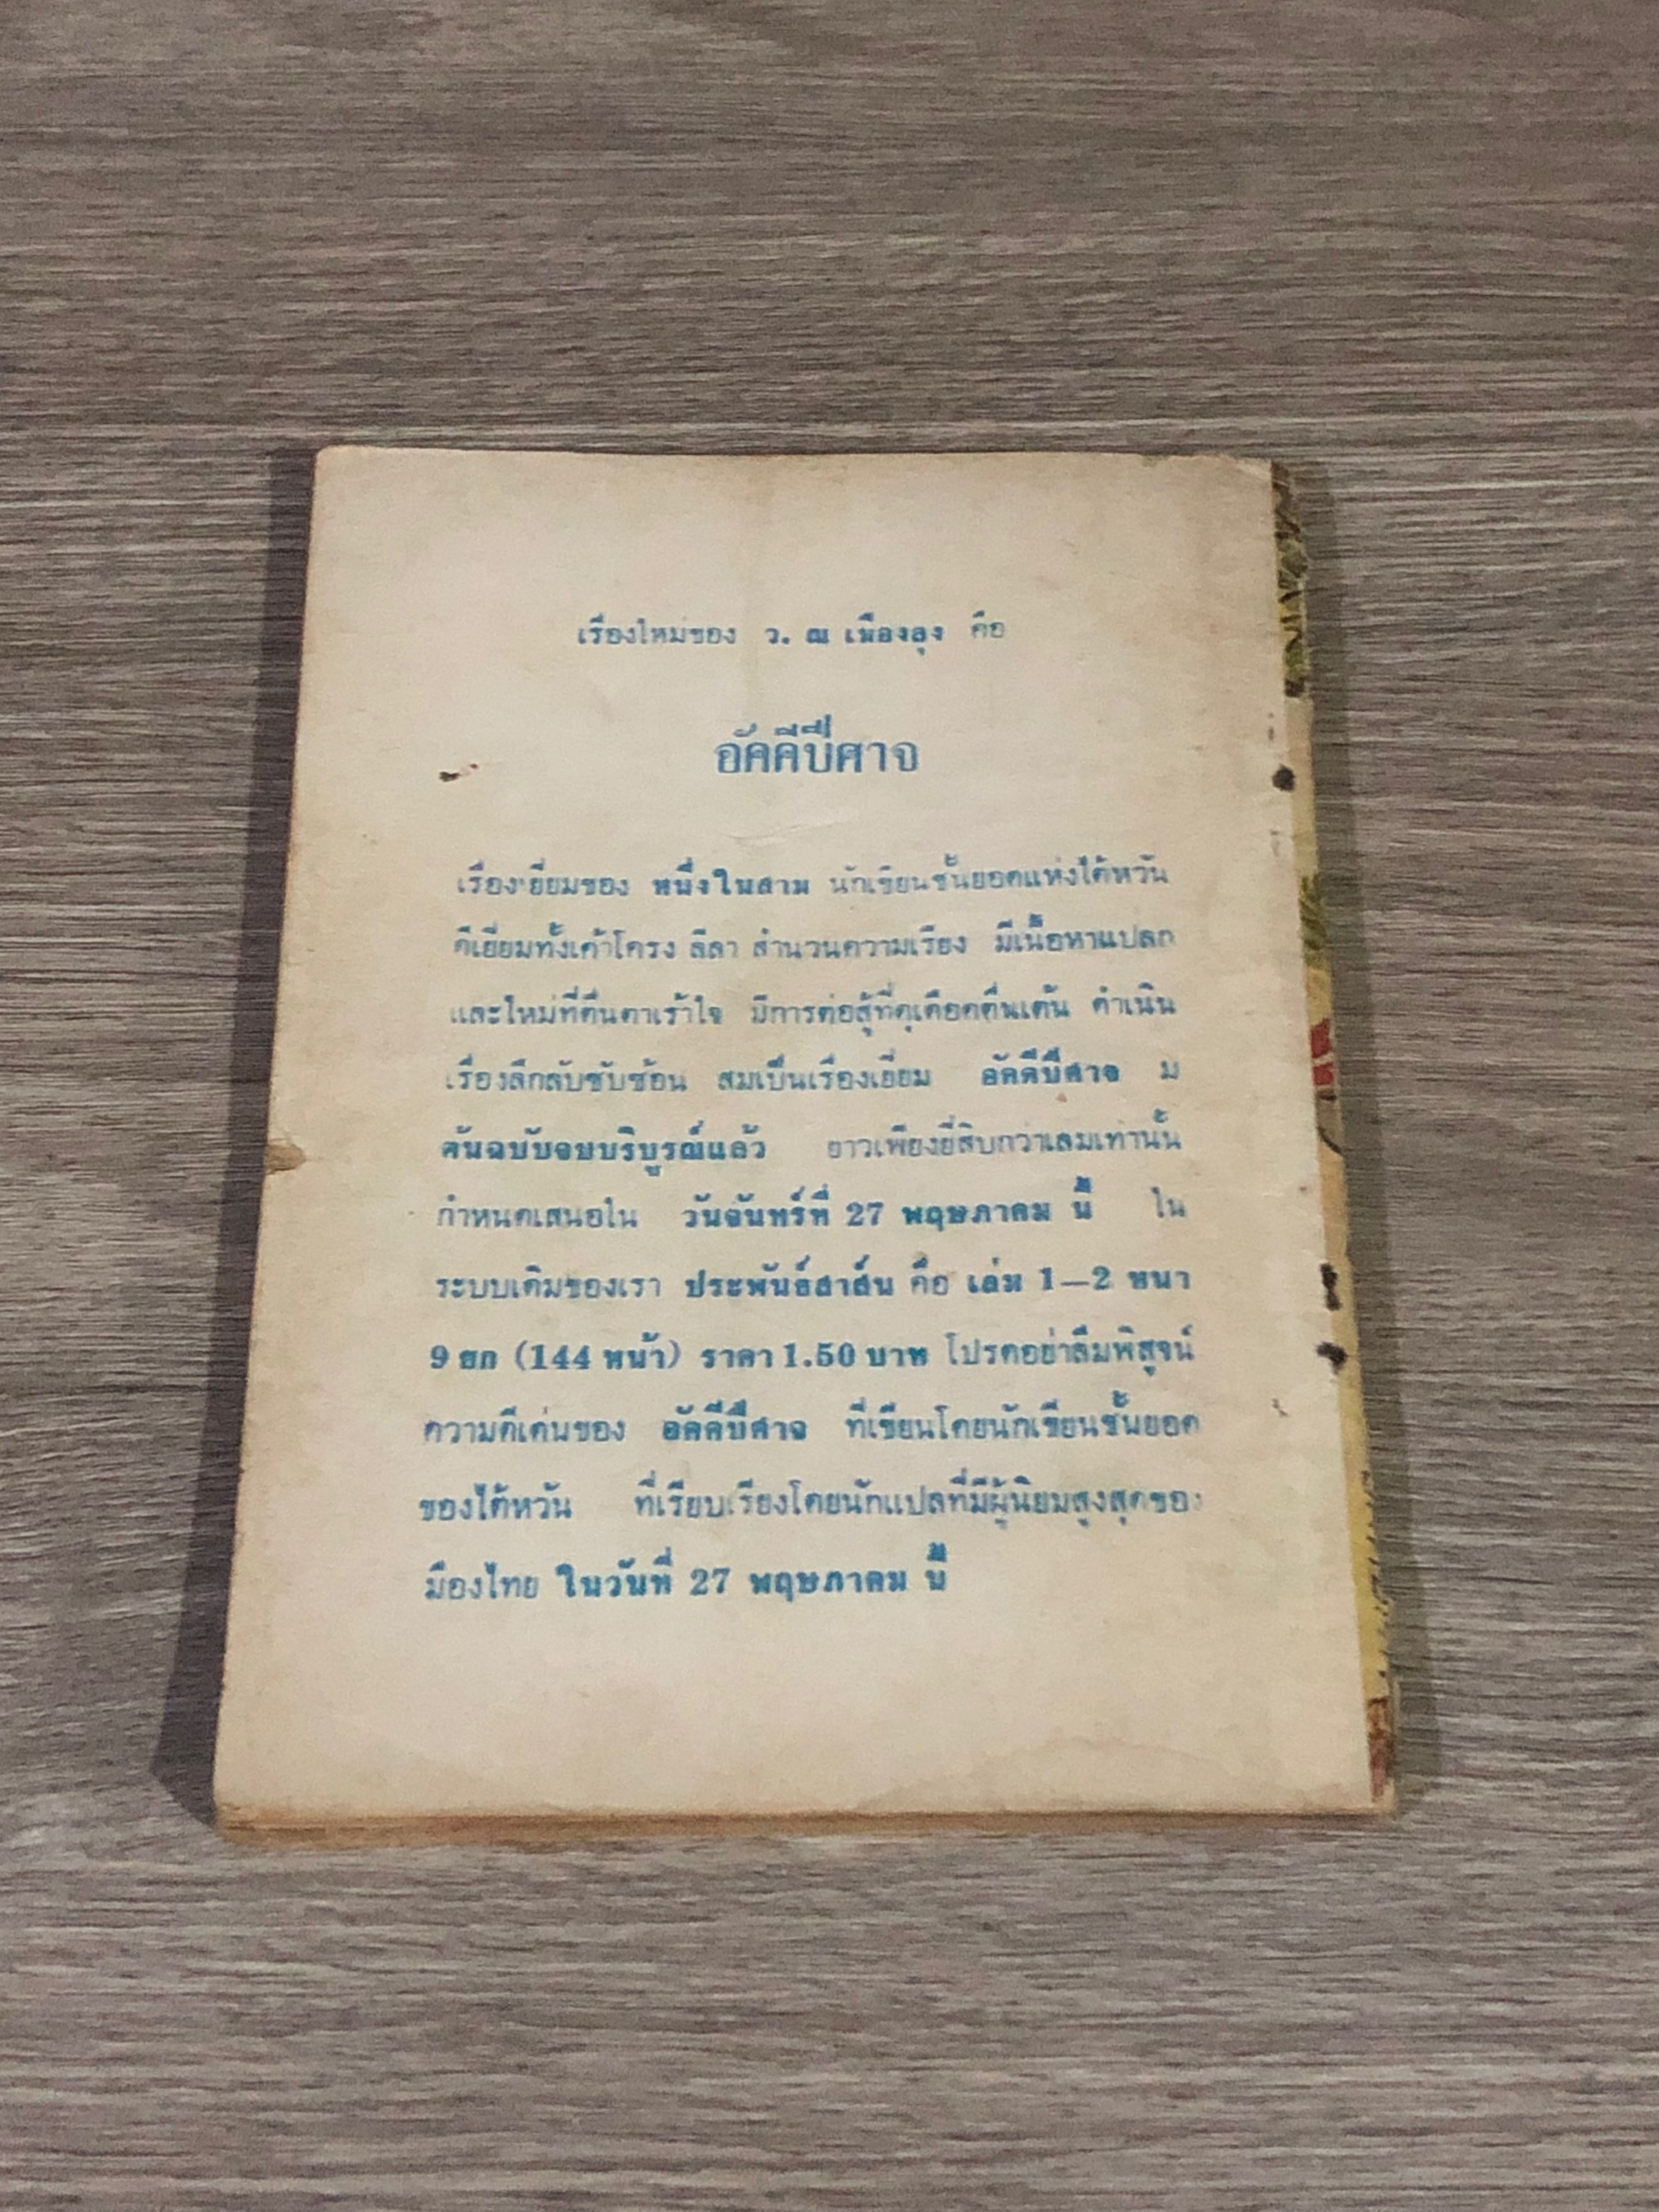 เรื่องใหม่ของ ว. ณ เมืองลุง คือ
อัคคีปีศาจ
เรื่องเยี่ยมของ หนึ่งในสาม นักเขียนชั้นยอดแห่งไต้หวัน
ดีเยี่ยมทั้งเค้าโครง ลีลา สำนวนความเรียง มีเนื้อหาแปลก
และใหม่ที่ตื่นตาเร้าใจ มีการต่อสู้ที่ดุเดือดตื่นเต้น ดำเนิน
เรื่องลึกลับซับซ้อน สมเป็นเรื่องเยี่ยม อัคคีปีศาจ มี
ต้นฉบับจบบริบูรณ์แล้ว ยาวเพียงยี่สิบกว่าเล่มเท่านั้น
กำหนดเสนอใน วันจันทร์ที่ 27 พฤษภาคม นี้ ใน
ระบบเดิมของเรา ประพันธ์สาส์น คือ เล่ม 1—2 หนา
9 ยก (144 หน้า) ราคา 1.50 บาท โปรดอย่าลืมพิสูจน์
ความดีเด่นของ อัคคีปีศาจ ที่เขียนโดยนักเขียนชั้นยอด
ของไต้หวัน ที่เรียบเรียงโดยนักแปลที่มีผู้นิยมสูงสุดของ
เมืองไทย ในวันที่ 27 พฤษภาคม นี้